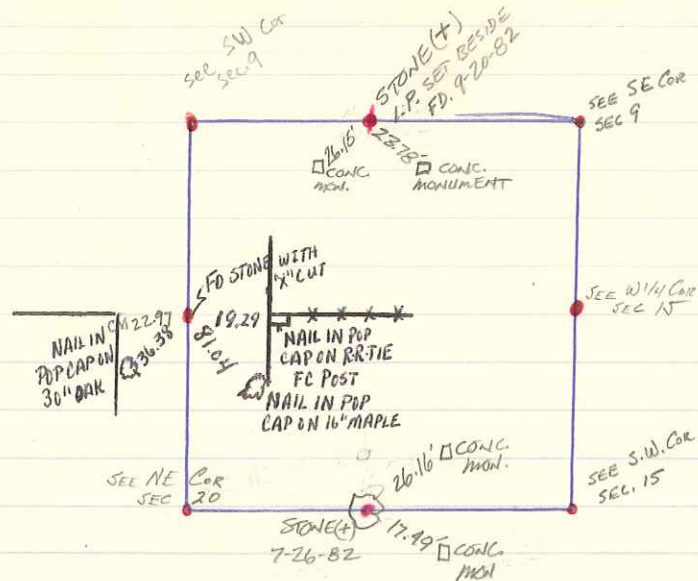 see SW Cor
sec 9
STONE (+)
I.P. SET BESIDE
FD. 9-20-82
SEE SE COR
SEC 9
26.15'
CONC.
MON.
23.78'
CONC.
MONUMENT
FD STONE WITH
"X" CUT
SEE W 1/4 COR
SEC 15
22.97
NAIL IN
POP CAP ON
30" OAK
36.38
19.29
81.04
NAIL IN POP
CAP ON R-R-TIE
FC POST
NAIL IN POP
CAP ON 16" MAPLE
SEE NE COR
SEC 20
26.16'
CONC.
MON.
SEE S.W. COR
SEC. 15
STONE (+)
7-26-82
17.49'
CONC.
MON